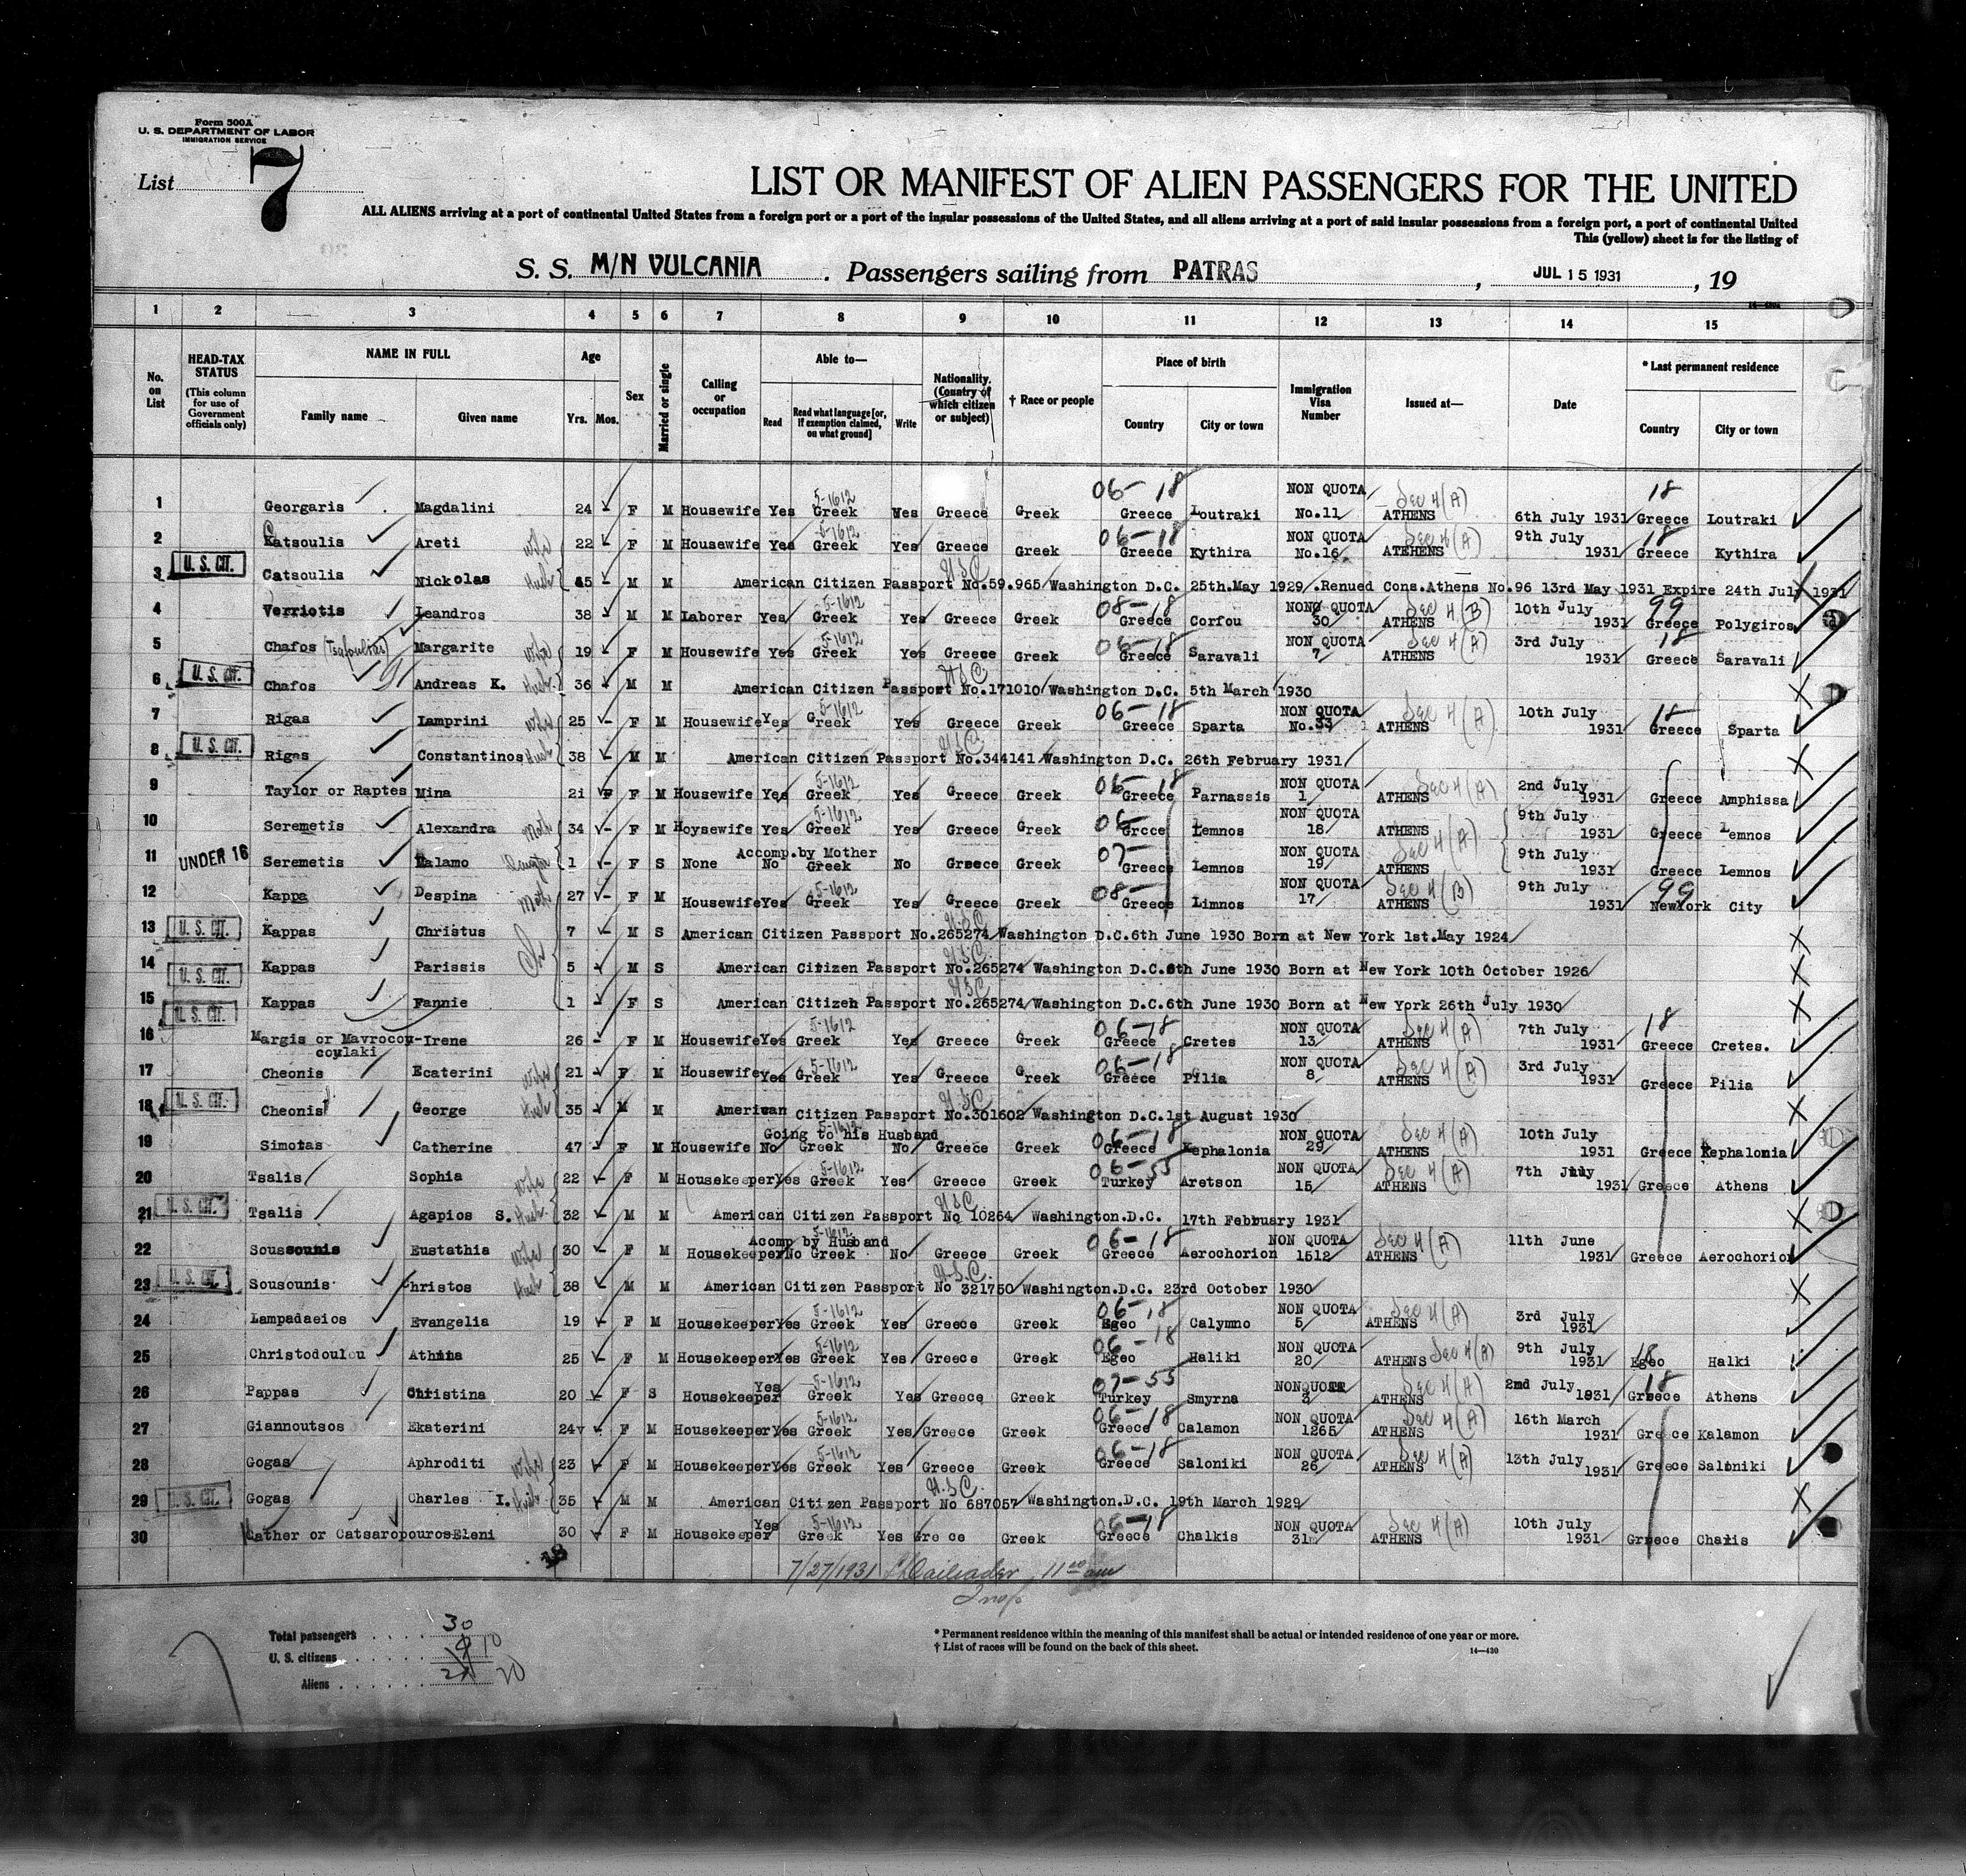 Form 500A
U. S. DEPARTMENT OF LABOR
IMMIGRATION SERVICE
List 7
LIST OR MANIFEST OF ALIEN PASSENGERS FOR THE UNITED
ALL ALIENS arriving at a port of continental United States from a foreign port or a port of the insular possessions of the United States, and all aliens arriving at a port of said insular possessions from a foreign port, a port of continental United
This (yellow) sheet is for the listing of
S. S. M/N VULCANIA. Passengers sailing from PATRAS, JUL 15 1931, 19
1 2 3 4 5 6 7 8 9 10 11 12 13 14 15
No. on List
HEAD-TAX STATUS (This column for use of Government officials only)
NAME IN FULL Family name Given name
Age Yrs. Mos.
Sex
Married or single
Calling or occupation
Able to— Read Read what language [or, if exemption claimed, on what ground] Write
Nationality. (Country of which citizen or subject)
† Race or people
Place of birth Country City or town
Immigration Visa Number
Issued at—
Date
* Last permanent residence Country City or town
1 Georgaris Magdalini 24 F M Housewife Yes 5-1612 Greek Yes Greece Greek 06-18 Greece Loutraki NON QUOTA No.11 Sec 4(A) ATHENS 6th July 1931 18 Greece Loutraki
2 Katsoulis Areti Wife 22 F M Housewife Yes 5-1612 Greek Yes Greece Greek 06-18 Greece Kythira NON QUOTA No.16 Sec 4(A) ATEHENS 9th July 1931 18 Greece Kythira
3 U. S. CIT. Catsoulis Nickolas Husb 45 M M USC American Citizen Passport No.59.965 Washington D.C. 25th.May 1929 .Renued Cons.Athens No.96 13rd May 1931 Expire 24th July 1931
4 Verriotis Leandros 38 M M Laborer Yes 5-1612 Greek Yes Greece Greek 08-18 Greece Corfou NON QUOTA 30 Sec 4(B) ATHENS 10th July 1931 99 Greece Polygiros
5 Chafos Margarite Wife 19 F M Housewife Yes 5-1612 Greek Yes Greece Greek 06-18 Greece Saravali NON QUOTA 7 Sec 4(A) ATHENS 3rd July 1931 18 Greece Saravali
6 U. S. CIT. Chafos Andreas K. Husb. 36 M M USC American Citizen Passport No.171010 Washington D.C. 5th March 1930
7 Rigas Lamprini Wife 25 F M Housewife Yes 5-1612 Greek Yes Greece Greek 06-18 Greece Sparta NON QUOTA No.33 Sec 4(A) ATHENS 10th July 1931 18 Greece Sparta
8 U. S. CIT. Rigas Constantinos Husb 38 M M USC American Citizen Passport No.344141 Washington D.C. 26th February 1931
9 Taylor or Raptes Mina 21 F M Housewife Yes 5-1612 Greek Yes Greece Greek 06-18 Greece Parnassis NON QUOTA 1 Sec 4(A) ATHENS 2nd July 1931 Greece Amphissa
10 Seremetis Alexandra Moth 34 F M Hoysewife Yes 5-1612 Greek Yes Greece Greek 06- Grcce Lemnos NON QUOTA 18 ATHENS Sec 4(A) 9th July 1931 Greece Lemnos
11 UNDER 16 Seremetis Kalamo 1 F S None Accomp.by Mother No Greek No Greece Greek 07- Greece Lemnos NON QUOTA 19 ATHENS 9th July 1931 Greece Lemnos
12 Kappa Despina Moth 27 F M Housewife Yes 5-1612 Greek Yes Greece Greek 08- Greece Limnos NON QUOTA 17 Sec 4(B) ATHENS 9th July 1931 99 NewYork City
13 U. S. CIT. Kappas Christus 7 M S USC American Citizen Passport No.265274 Washington D.C.6th June 1930 Born at New York 1st.May 1924
14 U. S. CIT. Kappas Parissis Ch 5 M S USC American Citizen Passport No.265274 Washington D.C.6th June 1930 Born at New York 10th October 1926
15 U. S. CIT. Kappas Fannie 1 F S USC American Citizen Passport No.265274 Washington D.C.6th June 1930 Born at New York 26th July 1930
16 Margis or Mavrocou-coulaki Irene 26 F M Housewife Yes 5-1612 Greek Yes Greece Greek 06-18 Greece Cretes NON QUOTA 13 Sec 4(A) ATHENS 7th July 1931 18 Greece Cretes.
17 Cheonis Ecaterini Wife 21 F M Housewife Yes 5-1612 Greek Yes Greece Greek 06-18 Greece Pilia NON QUOTA 8 Sec 4(A) ATHENS 3rd July 1931 Greece Pilia
18 U. S. CIT. Cheonis George Husb 35 M M USC American Citizen Passport No.301602 Washington D.C.1st August 1930
19 Simotas Catherine 47 F M Housewife Going to his Husband No 5-1612 Greek No Greece Greek 06-18 Greece Kephalonia NON QUOTA 29 Sec 4(A) ATHENS 10th July 1931 Greece Kephalonia
20 Tsalis Sophia Wife 22 F M Housekeeper Yes 5-1612 Greek Yes Greece Greek 06-55 Turkey Aretson NON QUOTA 15 Sec 4(A) ATHENS 7th July 1931 Greece Athens
21 U. S. CIT. Tsalis Agapios S. Husb. 32 M M USC American Citizen Passport No 10264 Washington.D.C. 17th February 1931
22 Soussounis Eustathia Wife 30 F M Housekeeper Acomp by Husband No 5-1612 Greek No Greece Greek 06-18 Greece Aerochorion NON QUOTA 1512 Sec 4(A) ATHENS 11th June 1931 Greece Aerochorion
23 U. S. CIT. Sousounis Christos Husb 38 M M U.S.C. American Citizen Passport No 321750 Washington.D.C. 23rd October 1930
24 Lampadaeios Evangelia 19 F M Housekeeper Yes 5-1612 Greek Yes Greece Greek 06-18 Egeo Calymno NON QUOTA 5 Sec 4(A) ATHENS 3rd July 1931
25 Christodoulou Athina 25 F M Housekeeper Yes 5-1612 Greek Yes Greece Greek 06-18 Egeo Haliki NON QUOTA 20 ATHENS Sec 4(A) 9th July 1931 18 Egeo Halki
26 Pappas Christina 20 F S Housekeeper Yes 5-1612 Greek Yes Greece Greek 07-55 Turkey Smyrna NONQUOTA 2 Sec 4(A) ATHENS 2nd July 1931 18 Greece Athens
27 Giannoutsos Ekaterini 24 F M Housekeeper Yes 5-1612 Greek Yes Greece Greek 06-18 Greece Calamon NON QUOTA 1265 Sec 4(A) ATHENS 16th March 1931 Greece Kalamon
28 Gogas Aphroditi Wife 23 F M Housekeeper Yes 5-1612 Greek Yes Greece Greek 06-18 Greece Saloniki NON QUOTA 26 Sec 4(A) ATHENS 13th July 1931 Greece Saloniki
29 U. S. CIT. Gogas Charles I. Husb. 35 M M U.S.C. American Citizen Passport No 687057 Washington.D.C. 19th March 1929
30 Cather or Catsaropouros-Eleni 30 F M Housekeeper Yes 5-1612 Greek Yes Gre ce Greek 06-18 Greece Chalkis NON QUOTA 31 Sec 4(A) ATHENS 10th July 1931 Greece Chalis
7/27/1931 11 00 am
Insp.
Total passengers 30
U. S. citizens 9 10
Aliens 21 20
* Permanent residence within the meaning of this manifest shall be actual or intended residence of one year or more.
† List of races will be found on the back of this sheet.
14—430